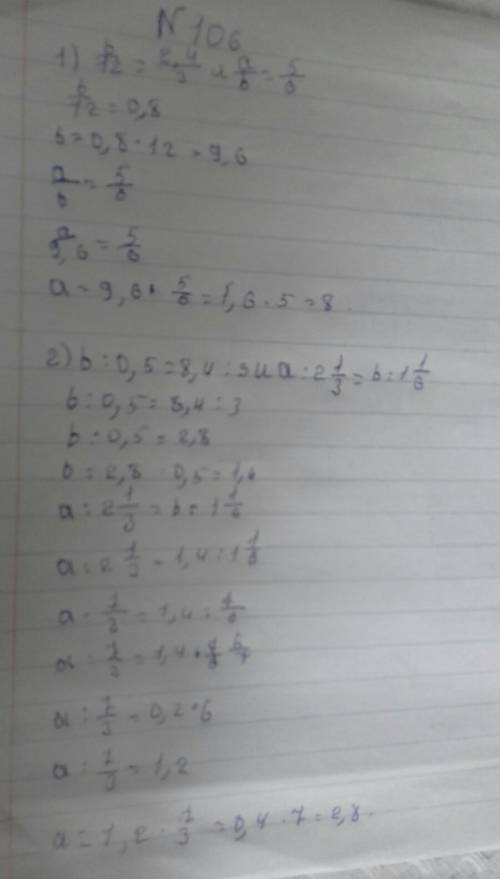 N 106
1) b/12 = 2,4/3 и a/b = 5/6
b/12 = 0,8
b = 0,8 · 12 = 9,6
a/b = 5/6
a/9,6 = 5/6
a = 9,6 · 5/6 = 1,6 · 5 = 8
2) b : 0,5 = 8,4 : 3 и a : 2 1/3 = b : 1 1/6
b : 0,5 = 8,4 : 3
b : 0,5 = 2,8
b = 2,8 · 0,5 = 1,4
a : 2 1/3 = b : 1 1/6
a : 2 1/3 = 1,4 : 1 1/6
a : 7/3 = 1,4 : 7/6
a : 7/3 = 1,4 · 6/7
a : 7/3 = 0,2 · 6
a : 7/3 = 1,2
a = 1,2 · 7/3 = 0,4 · 7 = 2,8.